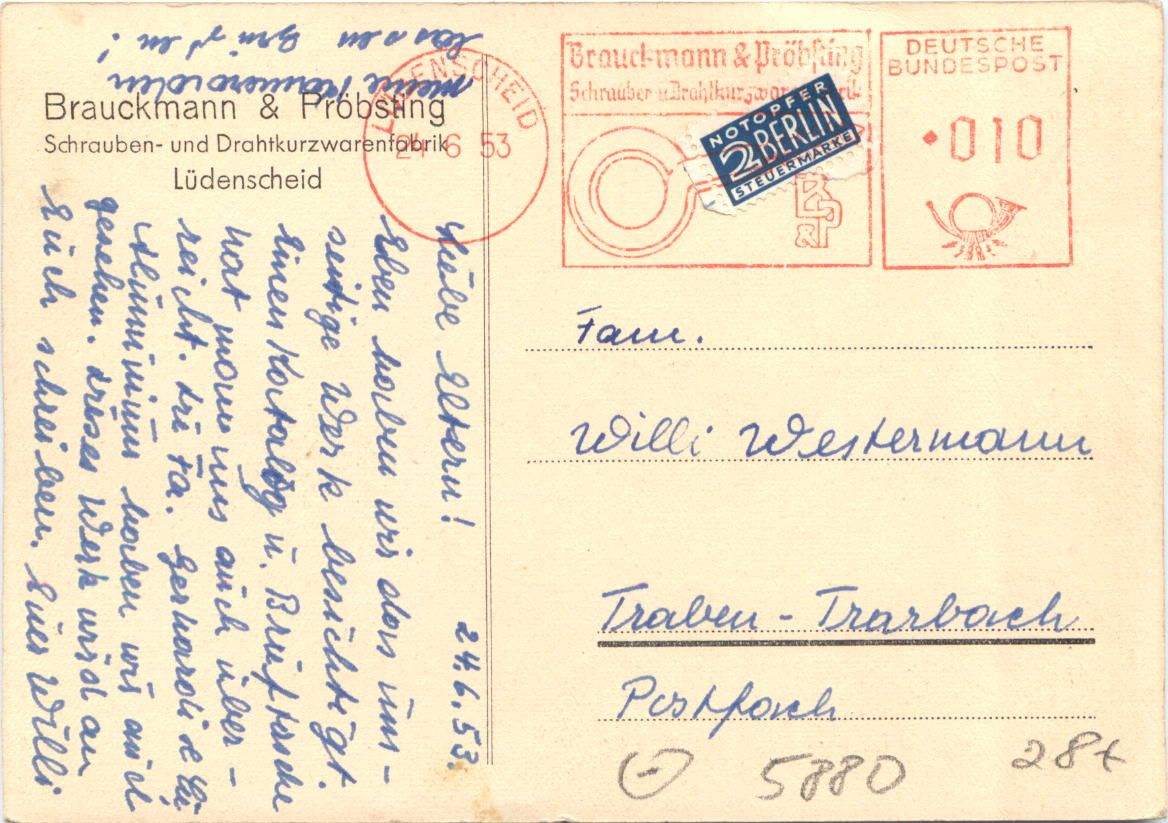 Brauckmann & Pröbsting
Schrauben- und Drahtkurzwarenfabrik
Lüdenscheid
LÜDENSCHEID
24 6 53
Brauckmann & Pröbsting
Schrauben- u. Drahtkurzwarenfabrik
B&P
NOTOPFER
2 BERLIN
STEUERMARKE
DEUTSCHE
BUNDESPOST
010
24.6.53.
Liebe Eltern!
Eben haben wir das um-
seitige Werk besichtigt.
Einen Katalog u. Brieftasche
hat man uns auch über-
reicht. Die Fa. Gerhardi &
Aluminium haben wir auch
gesehen. Dieses Werk wird an
Euch schreiben. Euer Willi
meine Kameraden
lassen Grüßen!
Fam.
Willi Westermann
Traben-Trarbach
Postfach
5880
28+